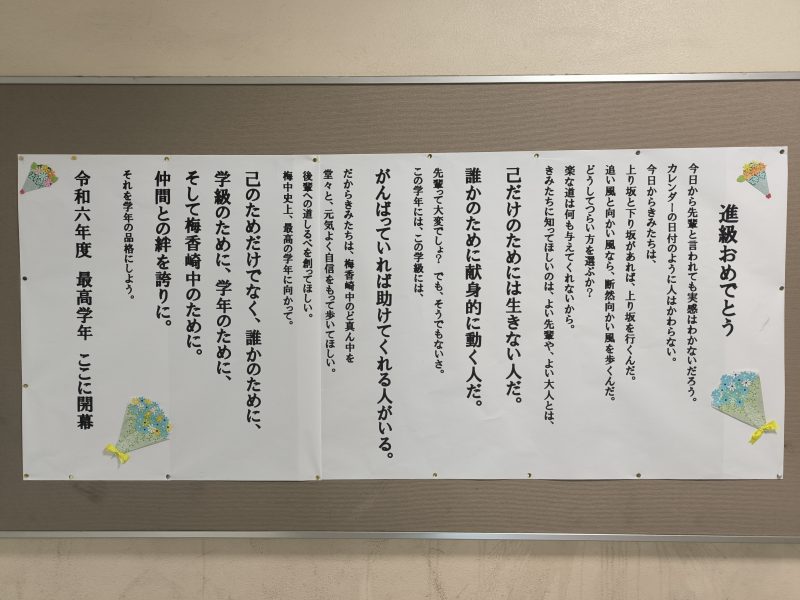 進級おめでとう
今日から先輩と言われても実感はわかないだろう。
カレンダーの日付のように人はかわらない。
今日からきみたちは、
上り坂と下り坂があれば、上り坂を行くんだ。
追い風と向かい風なら、断然向かい風を歩くんだ。
どうしてつらい方を選ぶか？
楽な道は何も与えてくれないから。
きみたちに知ってほしいのは、よい先輩や、よい大人とは、
己だけのためには生きない人だ。
誰かのために献身的に動く人だ。
先輩って大変でしょ？ でも、そうでもないさ。
この学年には、この学級には、
がんばっていれば助けてくれる人がいる。
だからきみたちは、梅香崎中のど真ん中を
堂々と、元気よく自信をもって歩いてほしい。
後輩への道しるべを創ってほしい。
梅中史上、最高の学年に向かって。
己のためだけでなく、誰かのために、
学級のために、学年のために、
そして梅香崎中のために。
仲間との絆を誇りに。
それを学年の品格にしよう。
令和六年度 最高学年 ここに開幕